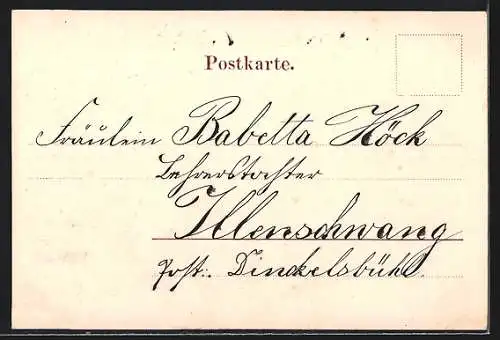 Postkarte.
Fräulein Babetta Höck
Lehrerstochter
Illenschwang
Post: Dinckelsbühl.